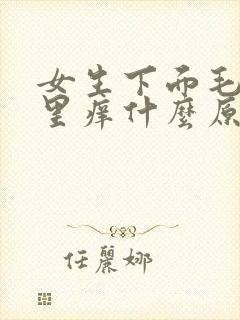 女生下而毛
里痒什麼原
任麗娜